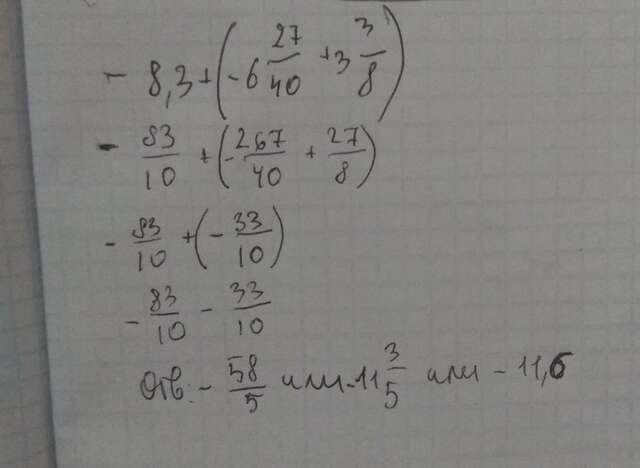 - 8,3 + (-6 27/40 + 3 3/8)
- 83/10 + (-267/40 + 27/8)
- 83/10 + (- 33/10)
- 83/10 - 33/10
Отв: - 58/5 или -11 3/5 или - 11,6